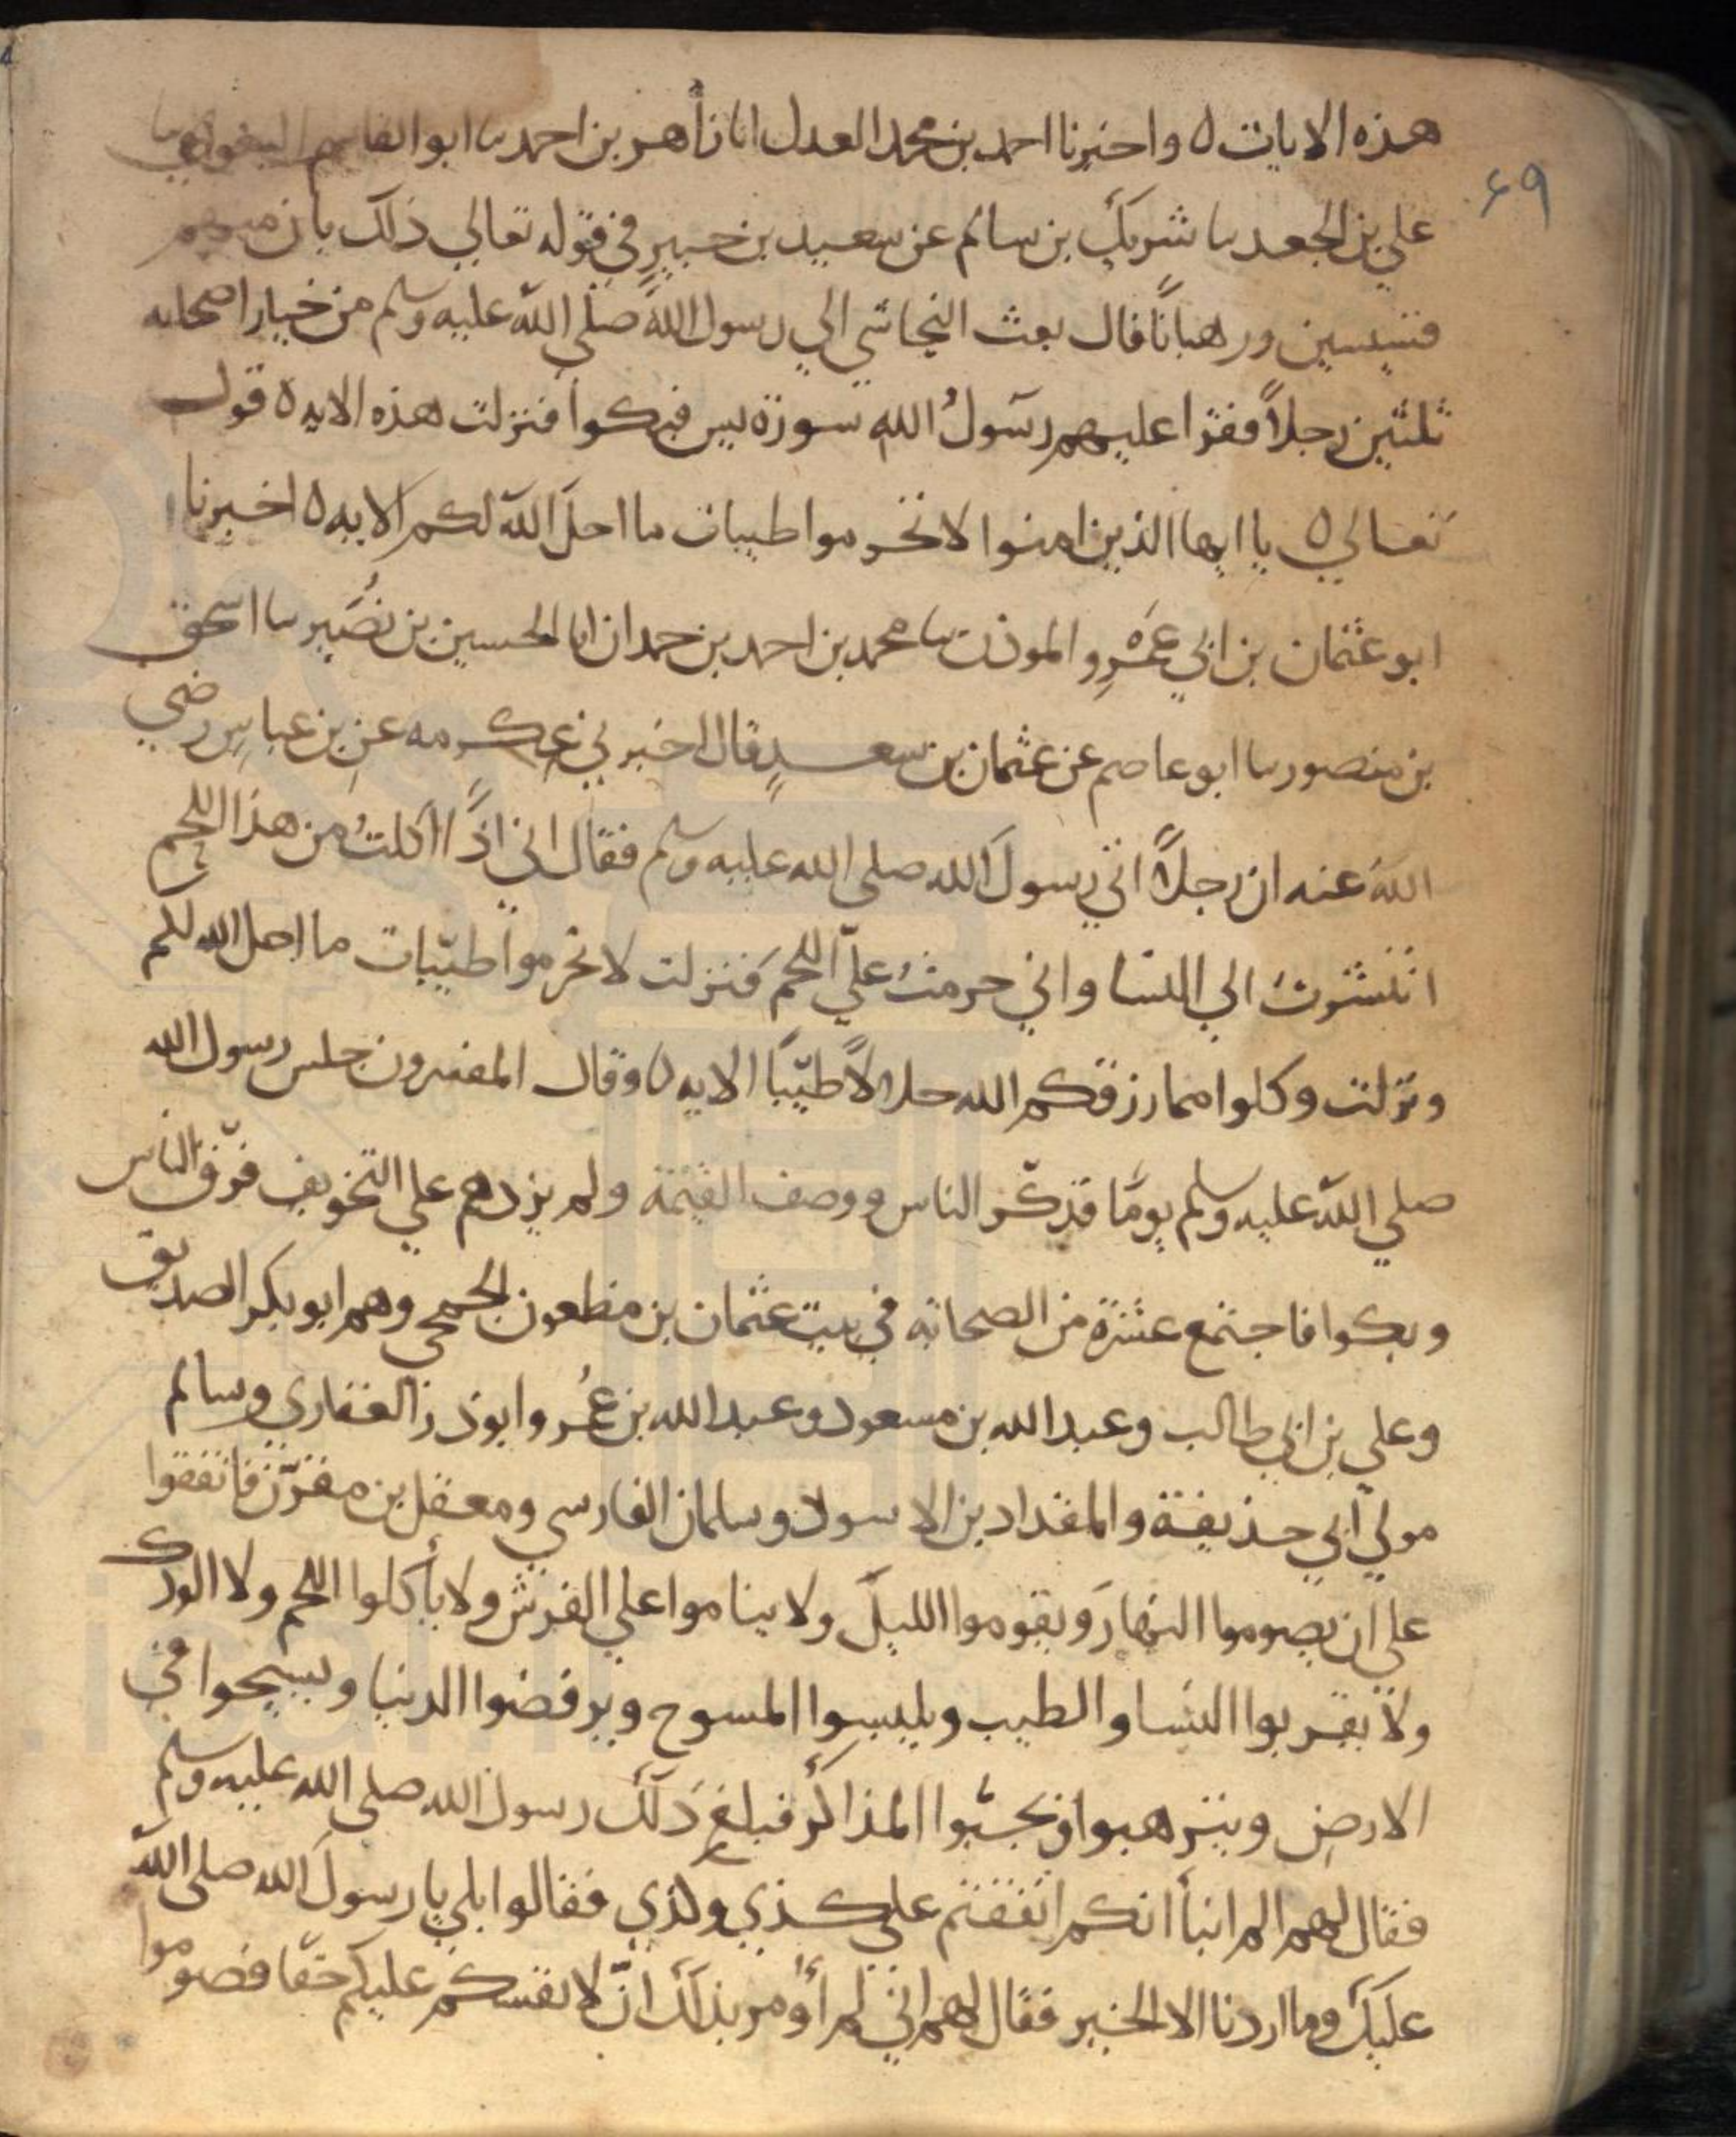 هذه الايات ه واخبرنا احمد بن محمد العدل انا زاهر بن احمد نا ابو القاسم البغوي نا
٦٩
علي بن الجعد نا شريك بن سالم عن سعيد بن جبير في قوله تعالي ذلك بان منهم
قسيسين ورهبانًا قال بعث النجاشي الي رسول الله صلي الله عليه وسلم من خيار اصحابه
ثلثين رجلاً فقرا عليهم رسولُ الله سورة يس فبكوا فنزلت هذه الايه ه قوله
تعالي ه يا ايها الذين امنوا لا تحرموا طيبات ما احل الله لكم الايه ه اخبرنا
ابو عثمان بن ابي عَمْرِو الموذن نا محمد بن احمد بن حمدان انا الحسين بن نُصَير نا اسحق
بن منصور نا ابو عاصم عن عثمان بن سعدٍ قال اخبرني عِكرمه عن بن عباسٍ رضي
اللهُ عنه ان رجلاً اتي رسولَ الله صلي الله عليه وسلم فقال اني اذا اكلتُ من هذا اللحم
انتشرتُ الي النسا واني حرمتُ عليّ اللحمَ فنزلت لا تحرموا طيّبات ما احل الله لكم
ونزلت وكلوا مما رزقكم الله حلالاً طيّبًا الايه ه وقال المفسرون جلس رسول الله
صلي الله عليه وسلم يومًا فذكّر الناس ووصف القيمة ولم يزدهم علي التخويف فرّق الناس
وبكوا فاجتمع عشرة من الصحابه في بيت عثمان بن مظعون الجمحي وهم ابو بكر الصديق
وعلي بن ابي طالب وعبد الله بن مسعود وعبد الله بن عُمر وابو ذر الغفاري وسالم
مولي ابي حذيفة والمقداد بن الاسود وسلمان الفارسي ومعقل بن مقرّن فاتفقوا
علي ان يصوموا النهارَ ويقوموا الليلَ ولا يناموا علي الفرش ولا يأكلوا اللحم ولا الودك
ولا يقربوا النسا والطيب ويلبسوا المسوح ويرفضوا الدنيا ويسيحوا في
الارض ويترهبوا ويجبّوا المذاكر فبلغ ذلك رسول الله صلي الله عليه وسلم
فقال لهم الم انبأ انكم اتفقتم علي كذي وكذي فقالوا بلي يا رسولَ الله صلي الله
عليك وما اردنا الا الخير فقال لهم اني لم أومر بذلك انّ لانفسكم عليكم حقّا فصوموا